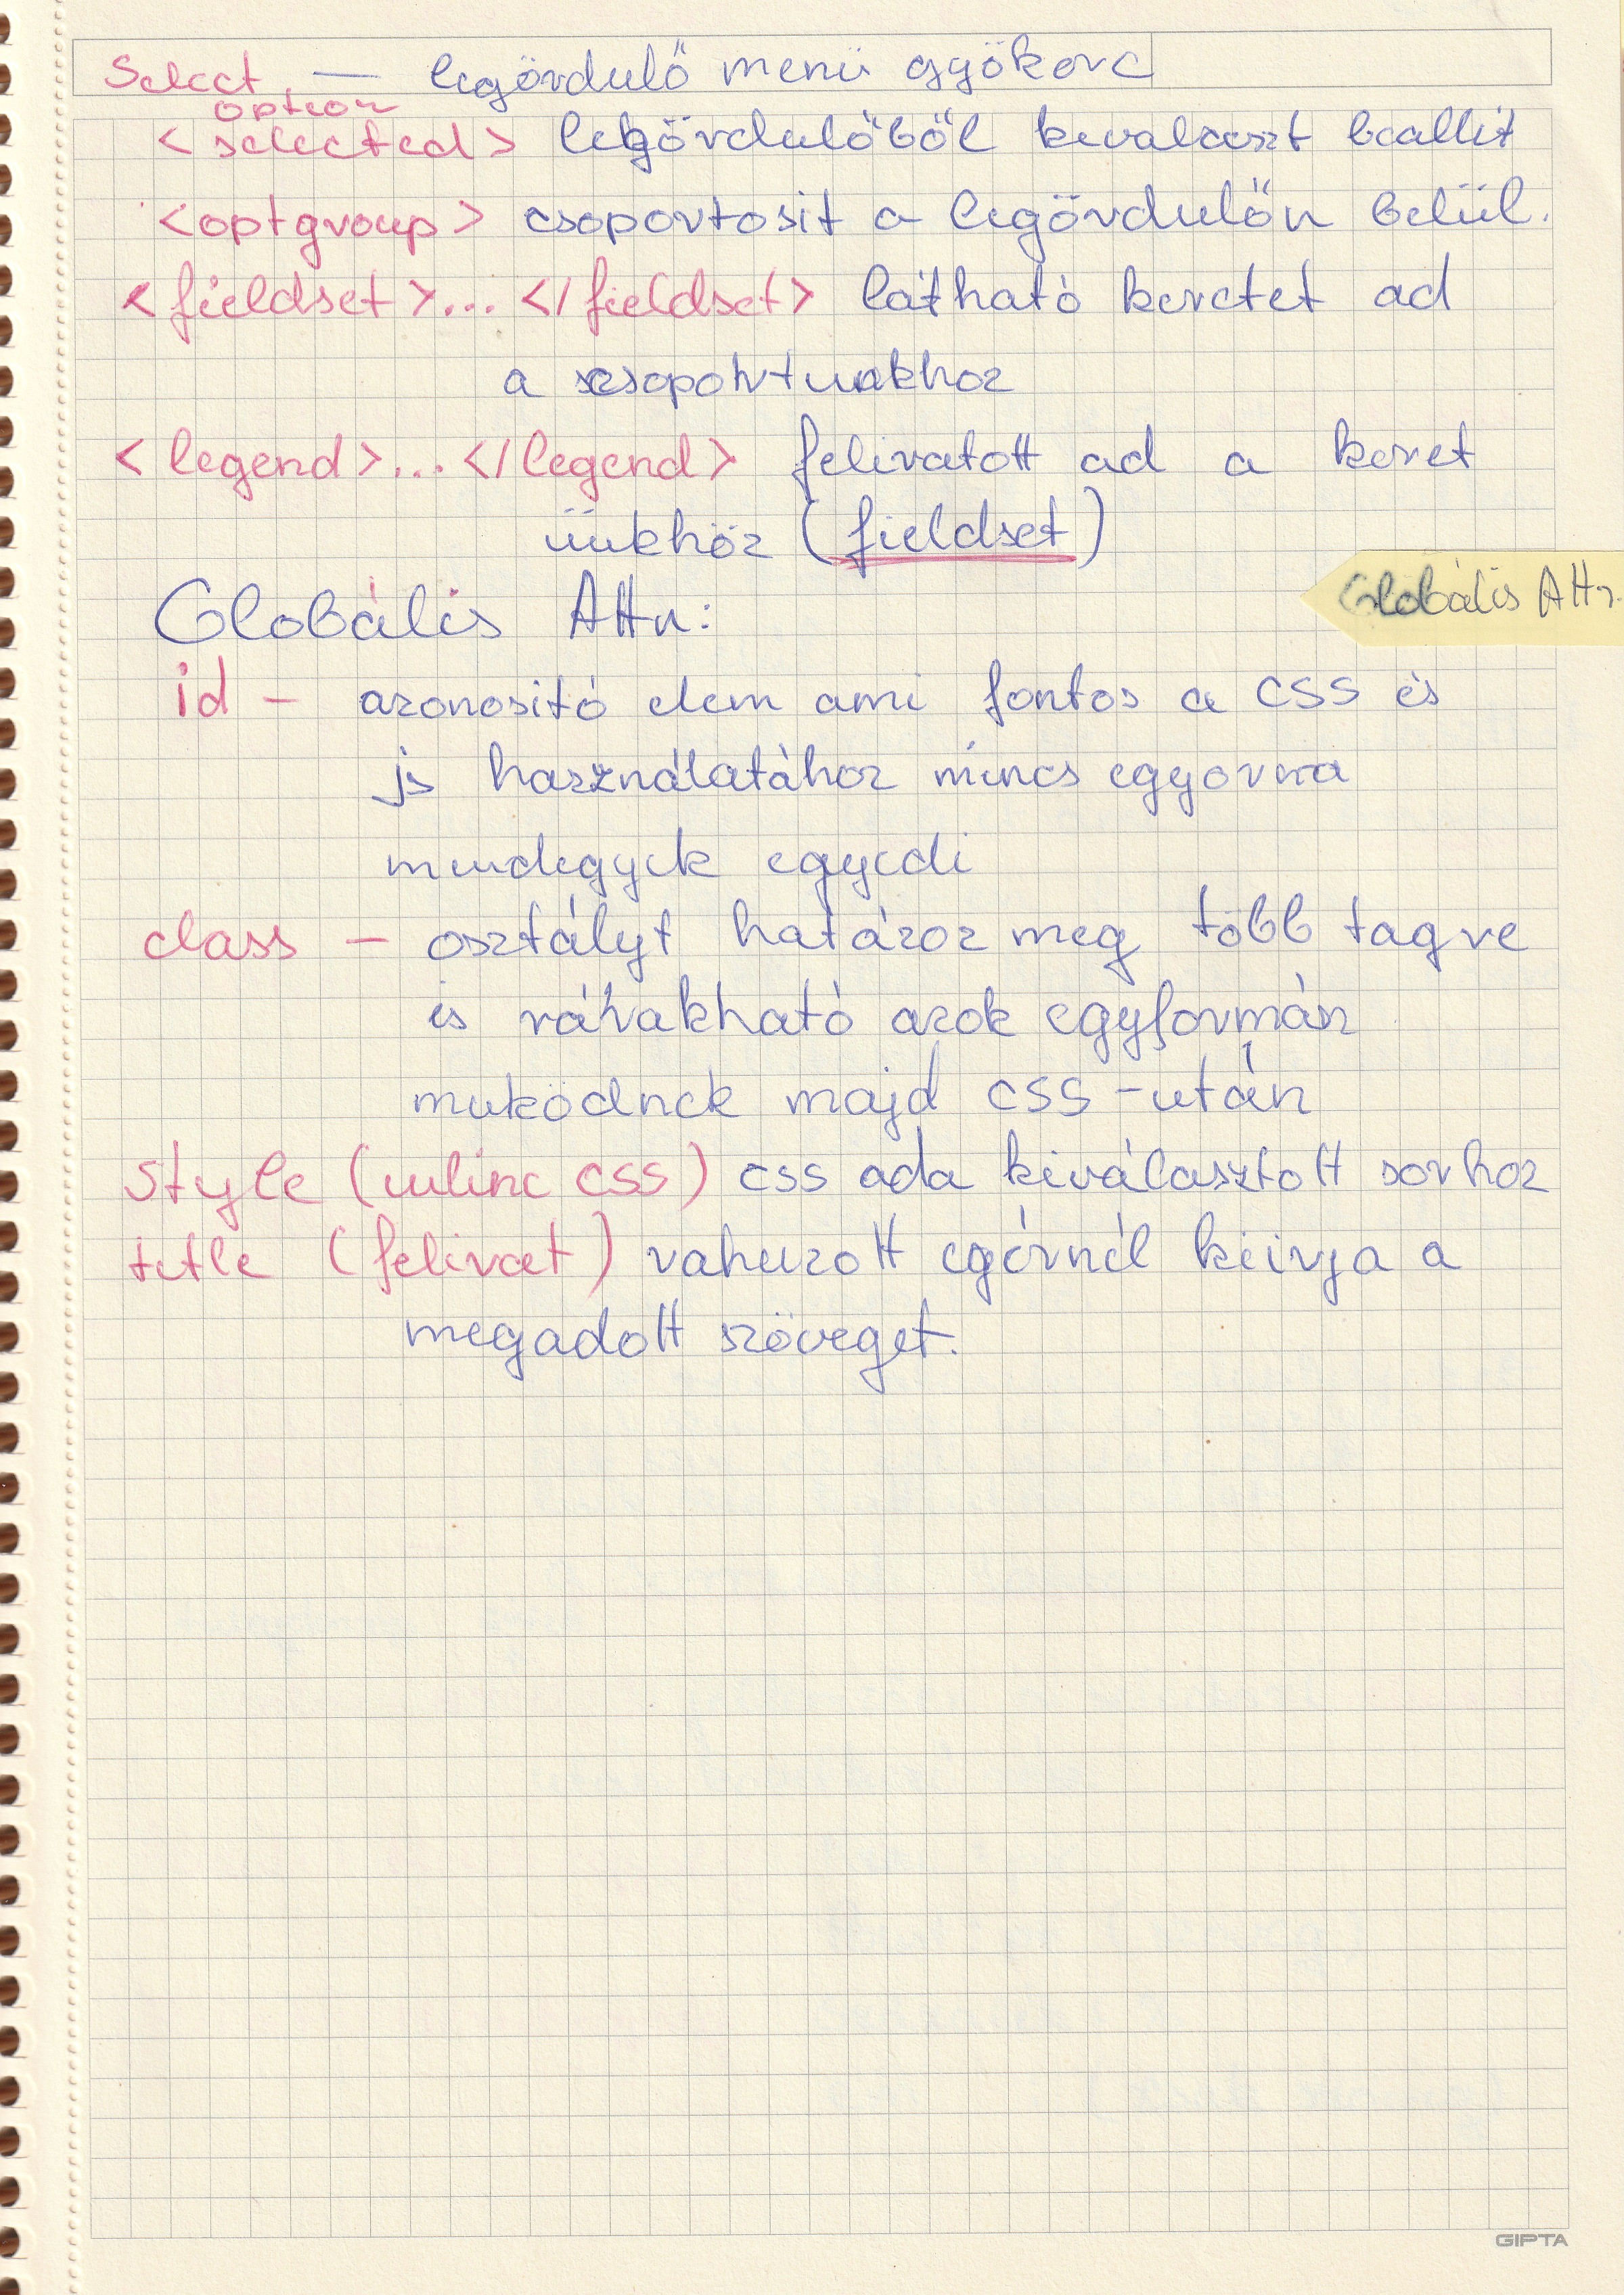 Select — legördulő menü gyökere
option
<selected> legördulőből kivalaszt beallit
<optgroup> csoportosit a legördulőn belül.
<fieldset>... </fieldset> látható keretet ad
a csoportunkhoz
<legend>... </legend> feliratott ad a keret
ünkhöz (fieldset)
Globális Attr:
Globális Attr.
id - azonositó elem ami fontos a CSS és
js használatához nincs egyorma
mindegyik egyedi
class - osztályt határoz meg több tagre
is ráírakható azok egyformán
muködnek majd CSS -után
Style (inline CSS) css ada kiválasztott sorhoz
title (felirat) rahuzott egérnél kiirja a
megadott szöveget.
GIPTA